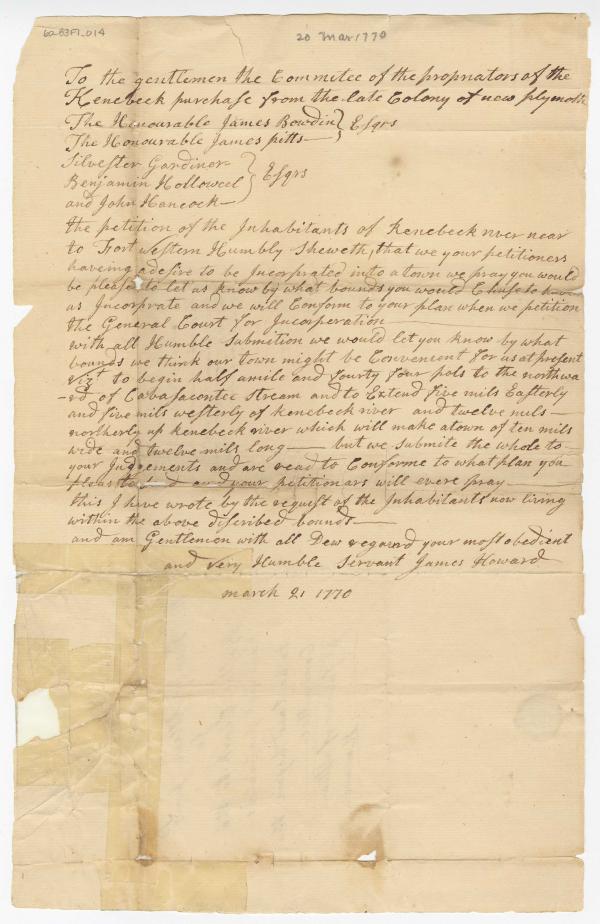 60-83F1_014
20 Mar 1770
To the gentlemen the Committee of the propriators of the
Kenebeck purchase from the late Colony of new plymoth
The Honourable James Bowdin } Esqrs
The Honourable James pitts
Silvester Gardiner
Benjamin Hollowel } Esqrs
and John Hancock
the petition of the Inhabitants of Kenebeck river near
to Fort western Humbly Sheweth, that we your petitioners
haveing a desire to be Incorprated into a town we pray you would
be pleased to let us know by what bounds you would Chuse to have
us Incorprate and we will Conform to your plan when we petition
the General Court for Incorperation
with all Humble Submition we would let you know by what
bounds we think our town might be Convenient for us at present
vizt to begin half a mile and fourty four pols to the northwa
-rd of Cabasacontee Stream and to Extend five mils Easterly
and five mils westerly of Kenebeck river and twelve mils
northerly up Kenebeck river which will make a town of ten mils
wide and twelve mils long — but we submite the whole to
your Judgements and are read to Conforme to what plan you
pleas to and your petitionars will evere pray
this I have wrote by the request of the Inhabitants now living
within the above discribed bounds
and am Gentlemen with all Dew regard your most obedient
and very Humble Servant James Howard
march 21 1770